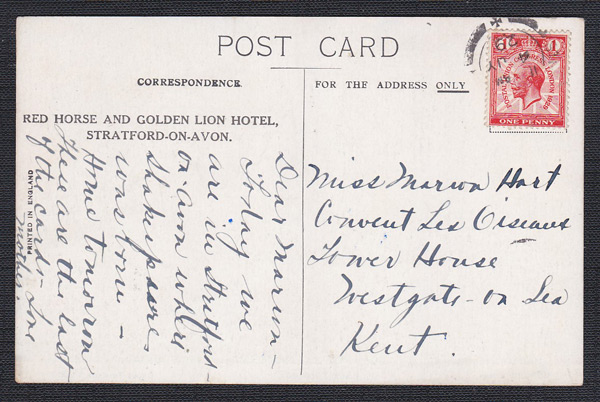 POST CARD
CORRESPONDENCE.
FOR THE ADDRESS ONLY
RED HORSE AND GOLDEN LION HOTEL,
STRATFORD-ON-AVON.
PRINTED IN ENGLAND
Dear Marion -
Today we
are in Stratford-
on-Avon where
Shakespeare
was born -
Home tomorrow
These are the last
of the cards - Love
Mother.
Miss Marion Hart
Convent Les Oiseaux
Tower House
Westgate-on Sea
Kent.
POSTAL UNION CONGRESS LONDON 1929
1
ONE PENNY
29